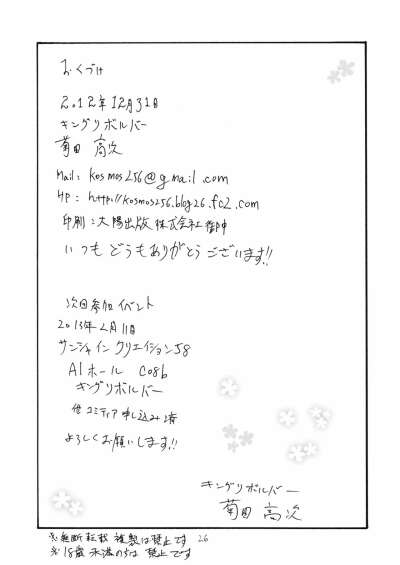 おくづけ
2012年12月31日
キングリボルバー
菊田 高次
Mail: kosmos256@gmail.com
HP: http://kosmos256.blog26.fc2.com
印刷:大陽出版株式会社 御中
いつもどうもありがとうございます!!
次回参加イベント
2013年2月11日
サンシャインクリエイション58
A1ホール C08b
キングリボルバー
他コミティア申し込み済
よろしくお願いします!!
キングリボルバー
菊田 高次
※無断転載 複製は禁止です 26
※18歳未満のちは禁止です